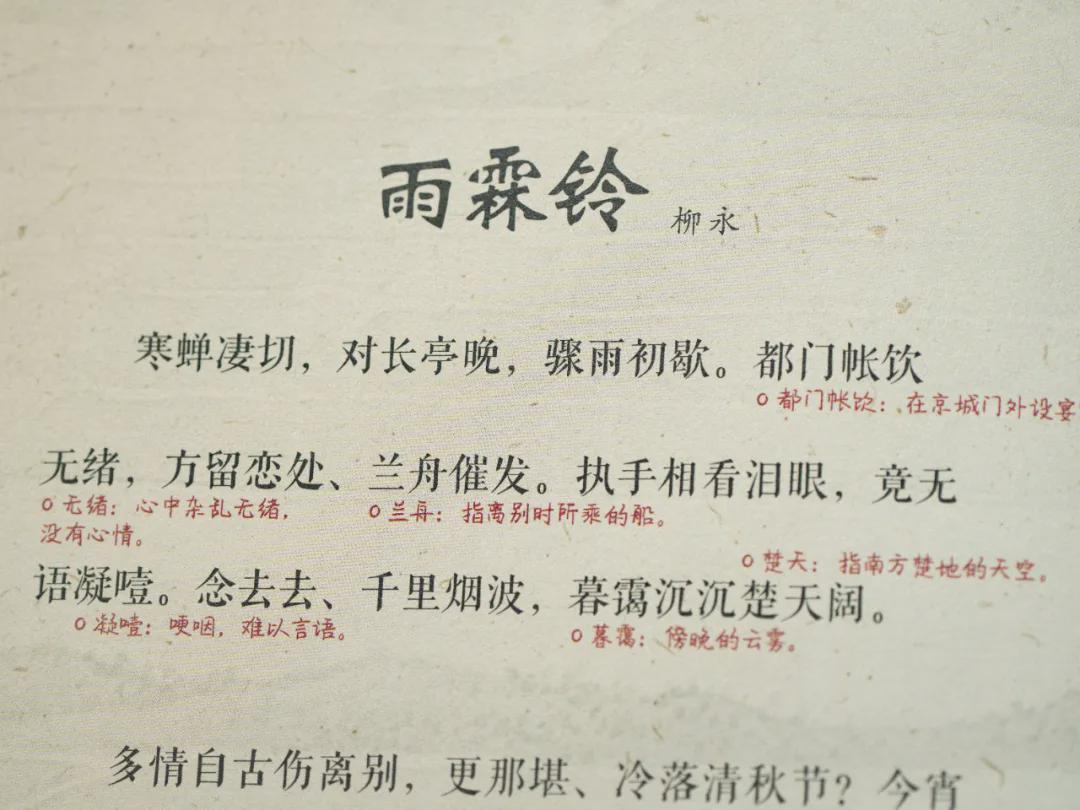 雨霖铃
柳永
寒蝉凄切，对长亭晚，骤雨初歇。都门帐饮
○都门帐饮：在京城门外设宴
无绪，方留恋处、兰舟催发。执手相看泪眼，竟无
○无绪：心中杂乱无绪，
没有心情。
○兰舟：指离别时所乘的船。
○楚天：指南方楚地的天空。
语凝噎。念去去、千里烟波，暮霭沉沉楚天阔。
○凝噎：哽咽，难以言语。
○暮霭：傍晚的云雾。
多情自古伤离别，更那堪、冷落清秋节？今宵